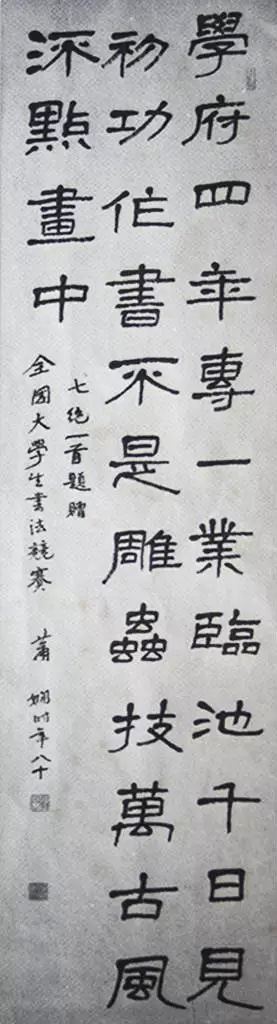 學府四年專一業臨池千日見
初功作書不是雕蟲技萬古風
流點畫中
七絕一首題贈
全國大學生書法競賽
蕭嫻時年八十